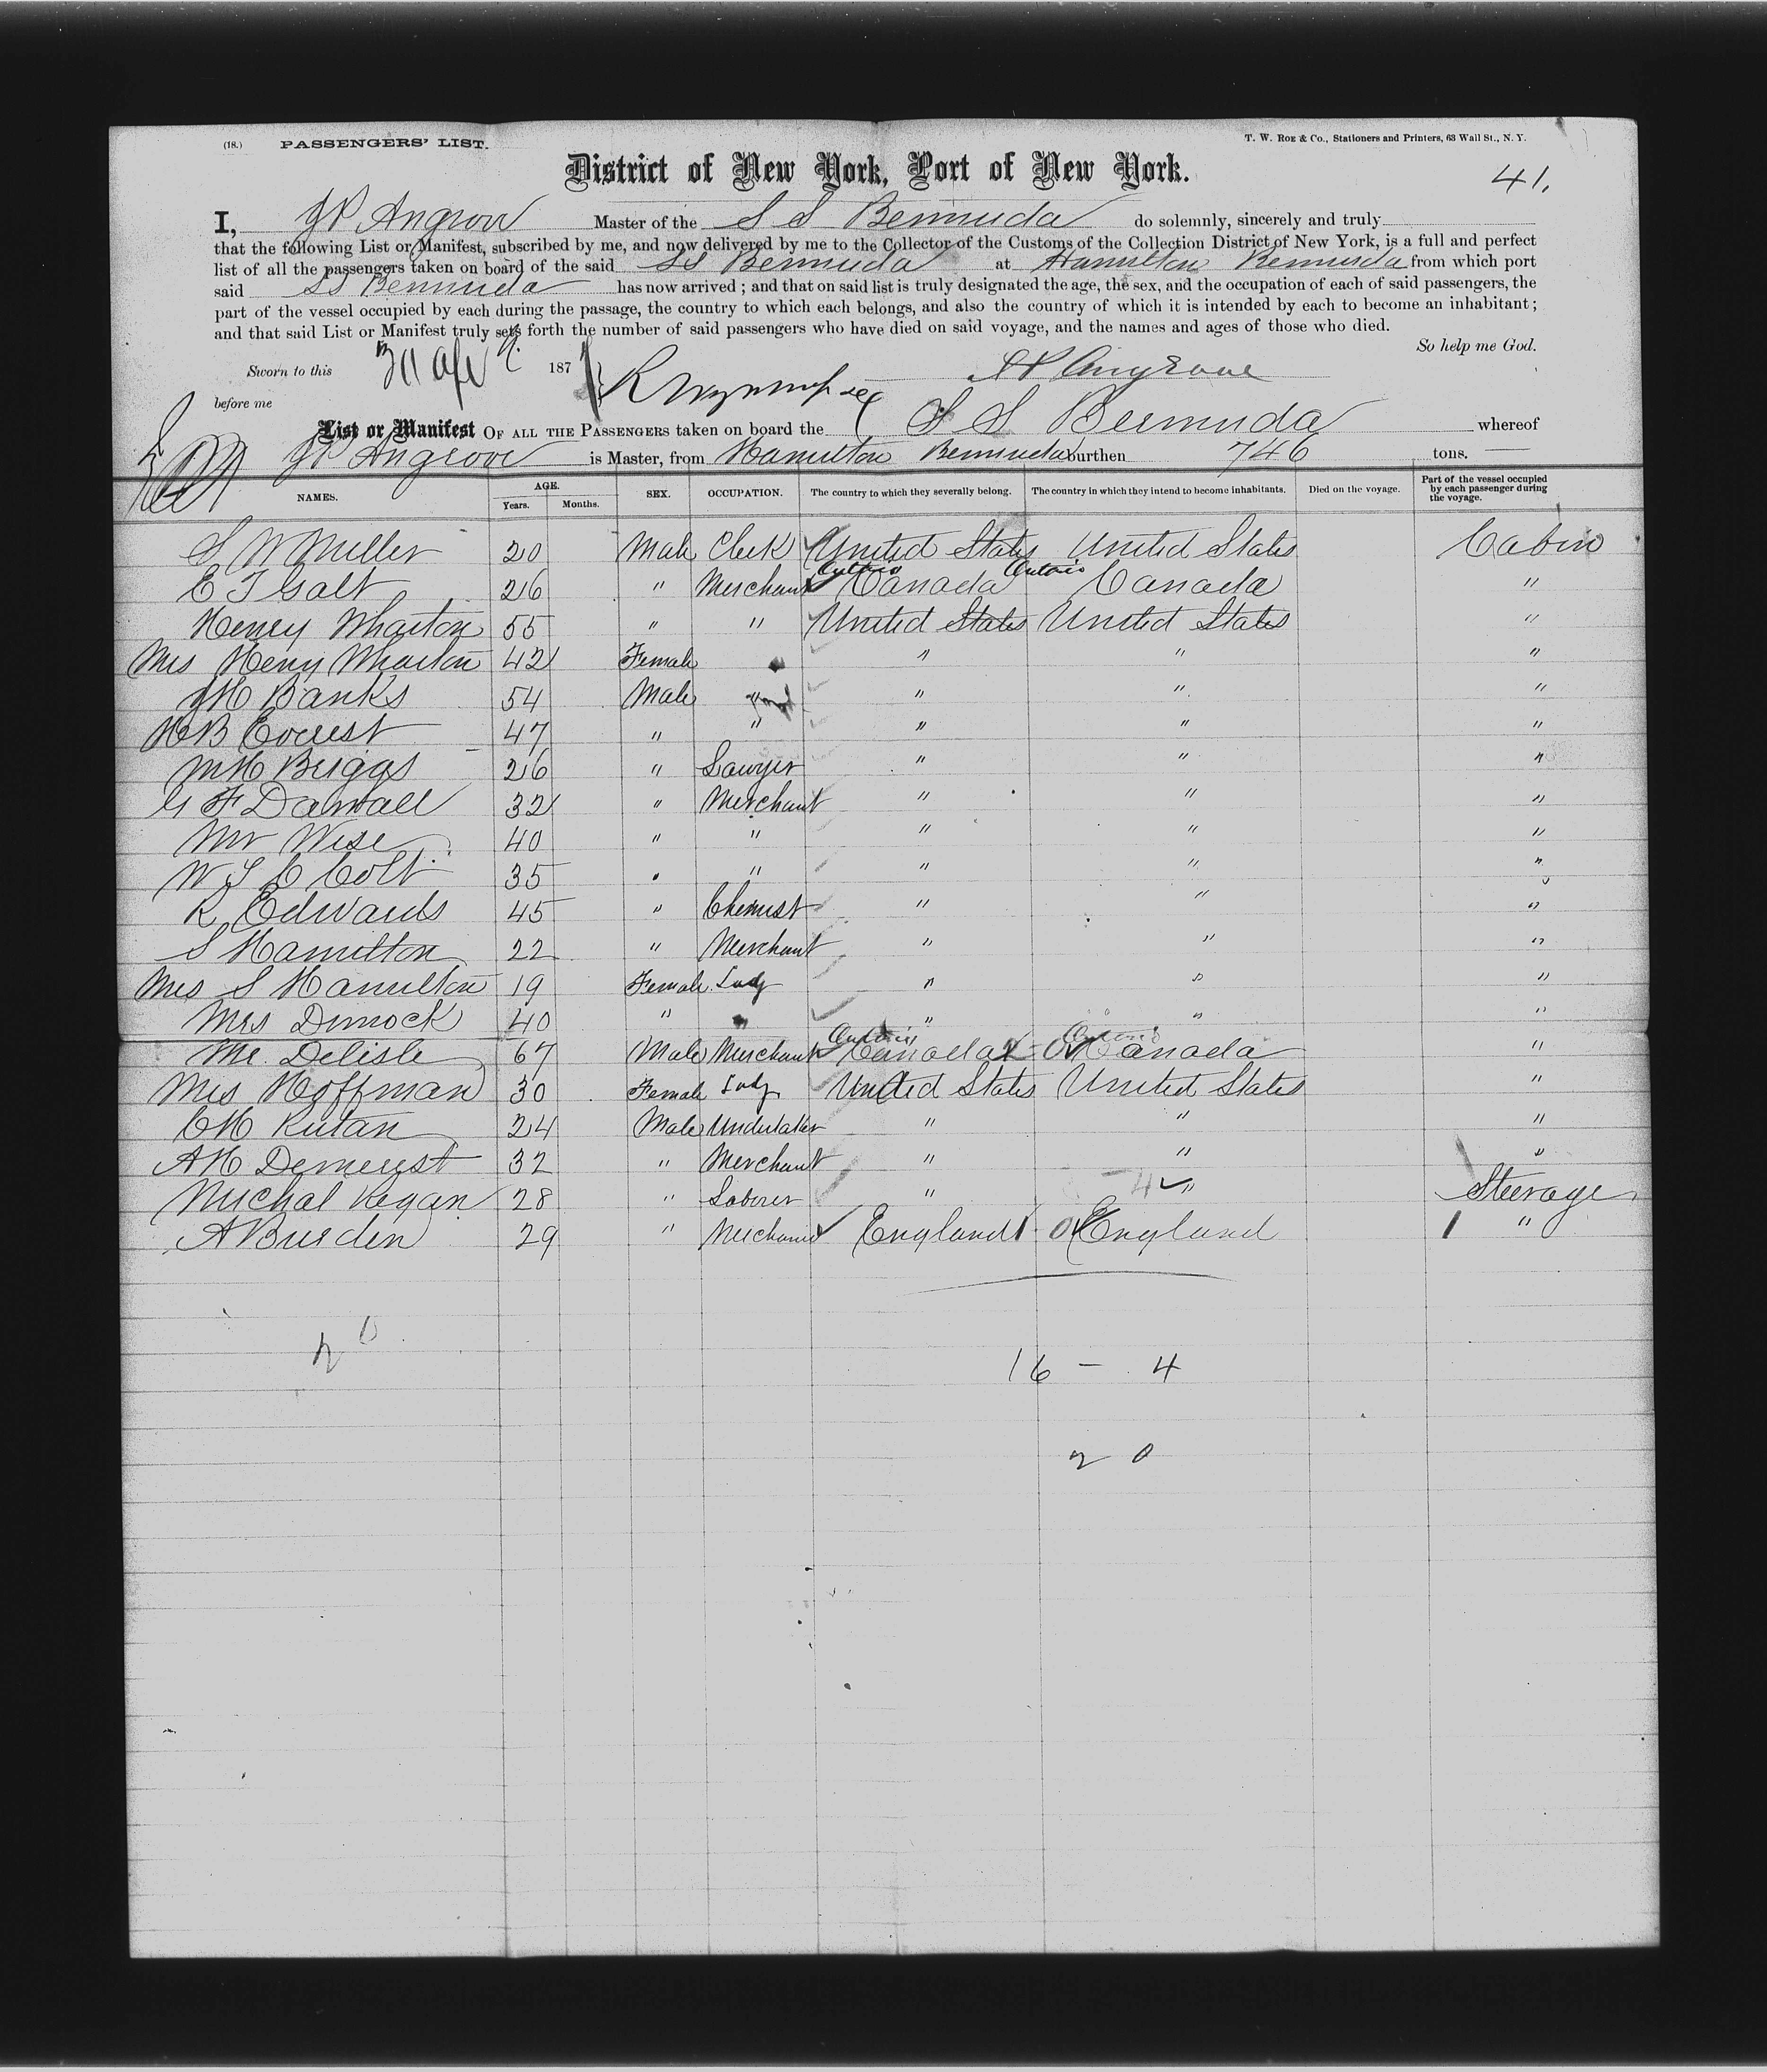 (18.) PASSENGERS' LIST. T. W. ROE & CO., Stationers and Printers, 63 Wall St., N. Y.
District of New York, Port of New York. 41.
I, JP Angrove Master of the S S Bermuda do solemnly, sincerely and truly
that the following List or Manifest, subscribed by me, and now delivered by me to the Collector of the Customs of the Collection District of New York, is a full and perfect
list of all the passengers taken on board of the said SS Bermuda at Hamilton Bermuda from which port
said SS Bermuda has now arrived; and that on said list is truly designated the age, the sex, and the occupation of each of said passengers, the
part of the vessel occupied by each during the passage, the country to which each belongs, and also the country of which it is intended by each to become an inhabitant;
and that said List or Manifest truly sets forth the number of said passengers who have died on said voyage, and the names and ages of those who died.
So help me God.
Sworn to this 187 JP Angrove
before me
List or Manifest OF ALL THE PASSENGERS taken on board the S S Bermuda whereof
JP Angrove is Master, from Hamilton Bermuda burthen 746 tons.
NAMES. AGE. Years. Months. SEX. OCCUPATION. The country to which they severally belong. The country in which they intend to become inhabitants. Died on the voyage. Part of the vessel occupied by each passenger during the voyage.
S W Miller 20 Male Clerk United States United States Cabin
Ontario Ontario
E T Galt 26 " Merchant Canada Canada "
Henry Wharton 55 " " United States United States "
Mrs Henry Wharton 42 Female " " "
JH Banks 54 Male " " " "
HB Everest 47 " " " " "
MH Briggs 26 " Lawyer " " "
G F Darnall 32 " Merchant " " "
Mr Wise 40 " " " " "
W S C Colt 35 " " " " "
R Edwards 45 " Chemist " " "
S Hamilton 22 " Merchant " " "
Mrs S Hamilton 19 Female Lady " " "
Mrs Dimock 40 " " " " "
Ontario Ontario
Mr. Delisle 67 Male Merchant Canada Canada "
Mrs Hoffman 30 Female Lady United States United States "
CH Rutan 24 Male Undertaker " " "
AH Demerest 32 " Merchant " " "
Michal Kegan 28 " Laborer " " Steerage
A Burden 29 " Mechanic England England "
16 - 4
20